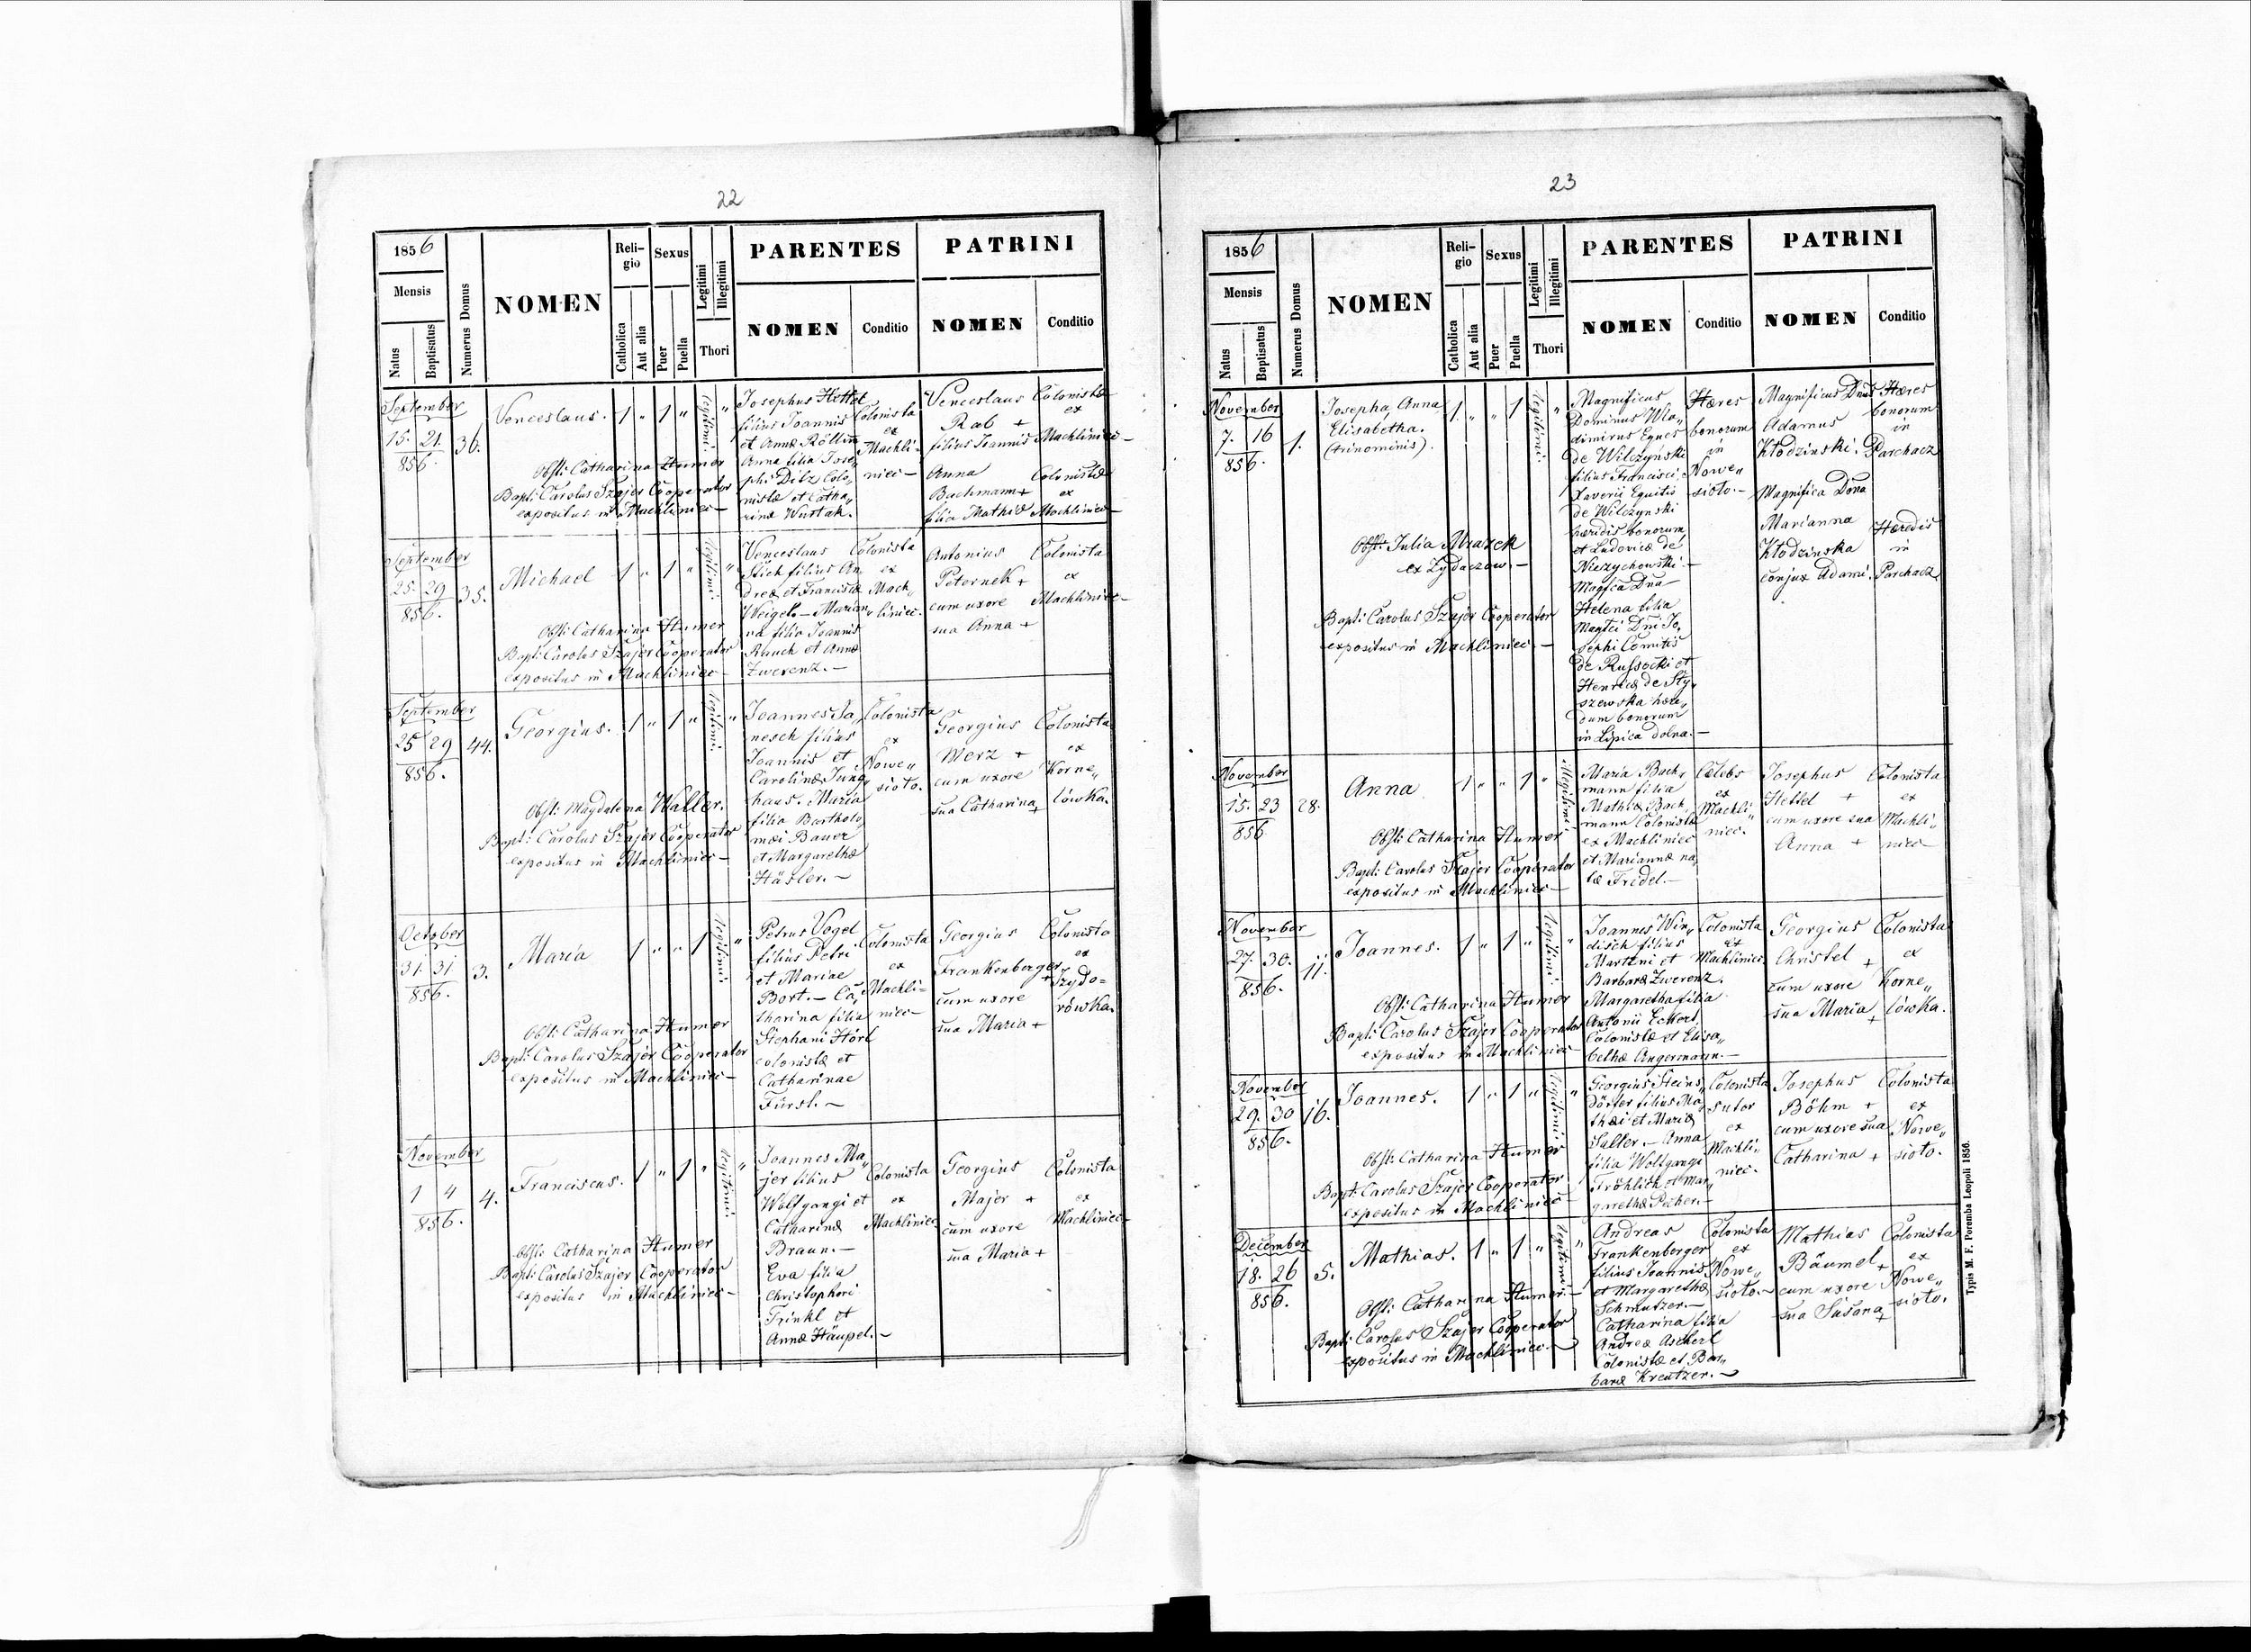 22
1856
Mensis
Natus
Baptisatus
Numerus Domus
NOMEN
Reli-
gio
Catholica
Aut alia
Sexus
Puer
Puella
Legitimi
Illegitimi
Thori
PARENTES
NOMEN
Conditio
PATRINI
NOMEN
Conditio
September
15. 21.
856.
36.
Venceslaus.
1 „ 1 „
legitimi
„
Obst: Catharina Humer
Bapt: Carolus Szajer Cooperator
expositus in Machliniec—
Josephus Hettel
filius Joannis
et Annæ Röllin
Anna filia Jose„
phi Ditz Colo„
nistæ et Catha„
rinæ Wustak.
Colonista
ex
Machli-
niec—
Venceslaus
Rab +
filius Joannis
Anna
Bachmann +
filia Mathiæ
Colonistæ
ex
Machliniec—
Colonistæ
ex
Machliniec—
September
25. 29
856.
35.
Michael
1 „ 1 „
legitimi
„
Obst: Catharina Humer
Bapt: Carolus Szajer Cooperator
expositus in Machliniec—
Venceslaus
Stich filius An„
dreæ et Franciscæ
Weigel.—Marian„
na filia Joannis
Rauch et Annæ
Zwerenz.—
Colonista
ex
Mach„
liniec.—
Antonius
Peternek +
cum uxore
sua Anna +
Colonista
ex
Machliniec—
September
25 29
856.
44.
Georgius.
1 „ 1 „
legitimi
„
Obst: Magdalena Waller.
Bapt: Carolus Szajer Cooperator
expositus in Machliniec—
Joannes Ja„
nesch filius
Joannis et
Carolinæ Jung„
haus. Maria
filia Bartholo„
mæi Bauer
et Margarethæ
Häsler.—
Colonista
ex
Nowe„
sioto.
Georgius
Merz +
cum uxore
sua Catharina +
Colonista
ex
Korne„
lówka.
October
31. 31
856.
3.
Maria
1 „ „ 1
legitimi
„
Obst: Catharina Humer
Bapt: Carolus Szajer Cooperator
expositus in Machliniec—
Petrus Vogel
filius Petri
et Mariae
Bort.— Ca„
tharina filia
Stephani Hörl
colonistæ et
Catharinae
Fürst.—
Colonista
ex
Machli=
niec—
Georgius
Frankenberger +
cum uxore
sua Maria +
Colonista
ex
Szydo=
rówka.
November
1 4
856.
4.
Franciscus.
1 „ 1 „
legitimi
„
Obst: Catharina Humer
Bapt: Carolus Szajer Cooperator
expositus in Machliniec—
Joannes Ma„
jer filius
Wolfgangi et
Catharinæ
Braun.—
Eva filia
Christophori
Trinkl et
Annæ Häupel.—
Colonista
ex
Machliniec
Georgius
Majer +
cum uxore
sua Maria +
Colonista
ex
Machliniec—
23
1856
Mensis
Natus
Baptisatus
Numerus Domus
NOMEN
Reli-
gio
Catholica
Aut alia
Sexus
Puer
Puella
Legitimi
Illegitimi
Thori
PARENTES
NOMEN
Conditio
PATRINI
NOMEN
Conditio
November
7. 16
856.
1.
Josepha Anna
Elisabetha.
(trinominis).
1. „ „ 1
legitimi
„
Obst: Julia Mrazek
ex Zydaczow.—
Bapt: Carolus Szajer Cooperator
expositus in Machliniec.—
Magnificus
Dominus Wla„
dimirus Eques
de Wilczynski
filius Francisci
Xaverii Equitis
de Wilczynski
hæridis bonorum
et Ludovicæ de
Niezychowski.—
Magfca Dna
Helena filia
Magfci Dni Jo„
sephi Comitis
de Russocki et
Henricæ de Sty„
szewska hære„
dum bonorum
in Lipica dolna.—
Hæres
bonorum
in
Nowe„
sioto.—
Magnificus Dnus
Adamus
Kłodzinski.
Magnifica Dona
Marianna
Kłodzinska
conjux Adami.
Hæres
bonorum
in
Parchacz
Hæredis
in
Parchacz
November
15. 23
856
28.
Anna
1 „ „ 1 „
illegitimi
Obst: Catharina Humer
Bapt: Carolus Szajer Cooperator
expositus in Machliniec—
Maria Bach„
mann filia
Mathiæ Bach„
mann Colonistæ
ex Machliniec
et Mariannæ na„
tæ Fridel.—
Cælebs
ex
Machli„
niec.
Josephus
Hettel +
cum uxore sua
Anna +
Colonista
ex
Machli„
niec
November
27. 30.
856.
11.
Joannes.
1 „ 1 „
legitimi
„
Obst: Catharina Humer
Bapt: Carolus Szajer Cooperator
expositus in Machliniec—
Joannes Win„
disch filius
Martini et
Barbaræ Zwerenz.
Margaretha filia
Antonii Eckert
Colonistæ et Elisa„
bethæ Angermann.—
Colonista
ex
Machliniec.
Georgius
Christel +
cum uxore
sua Maria +
Colonista
ex
Korne„
lówka.
November
29. 30
856.
16.
Joannes.
1 „ 1 „
legitimi
„
Obst: Catharina Humer
Bapt: Carolus Szajer Cooperator
expositus in Machliniec—
Georgius Steins„
dörfer filius Ma„
thæi et Mariæ
Saller.— Anna
filia Wolfgangi
Fröhlich et Mar„
garethæ
Colonista
sutor
ex
Machli„
niec.
Josephus
Böhm +
cum uxore sua
Catharina +
Colonista
ex
Nowe„
sioto.
December
18. 26
856.
5.
Mathias.
1 „ 1 „
legitimi
„
Obst: Catharina Humer.—
Bapt: Carolus Szajer Cooperator
expositus in Machliniec.—
Andreas
Frankenberger
filius Joannis
et Margarethæ
Schmutzer.—
Catharina filia
Andreæ Ascherl
Colonistæ et Bar„
baræ Kreutzer.—
Colonista
ex
Nowe„
sioto.—
Mathias
Bäumel +
cum uxore
sua Susana +
Colonista
ex
Nowe„
sioto.
Typis M. F. Poremba Leopoli 1856.